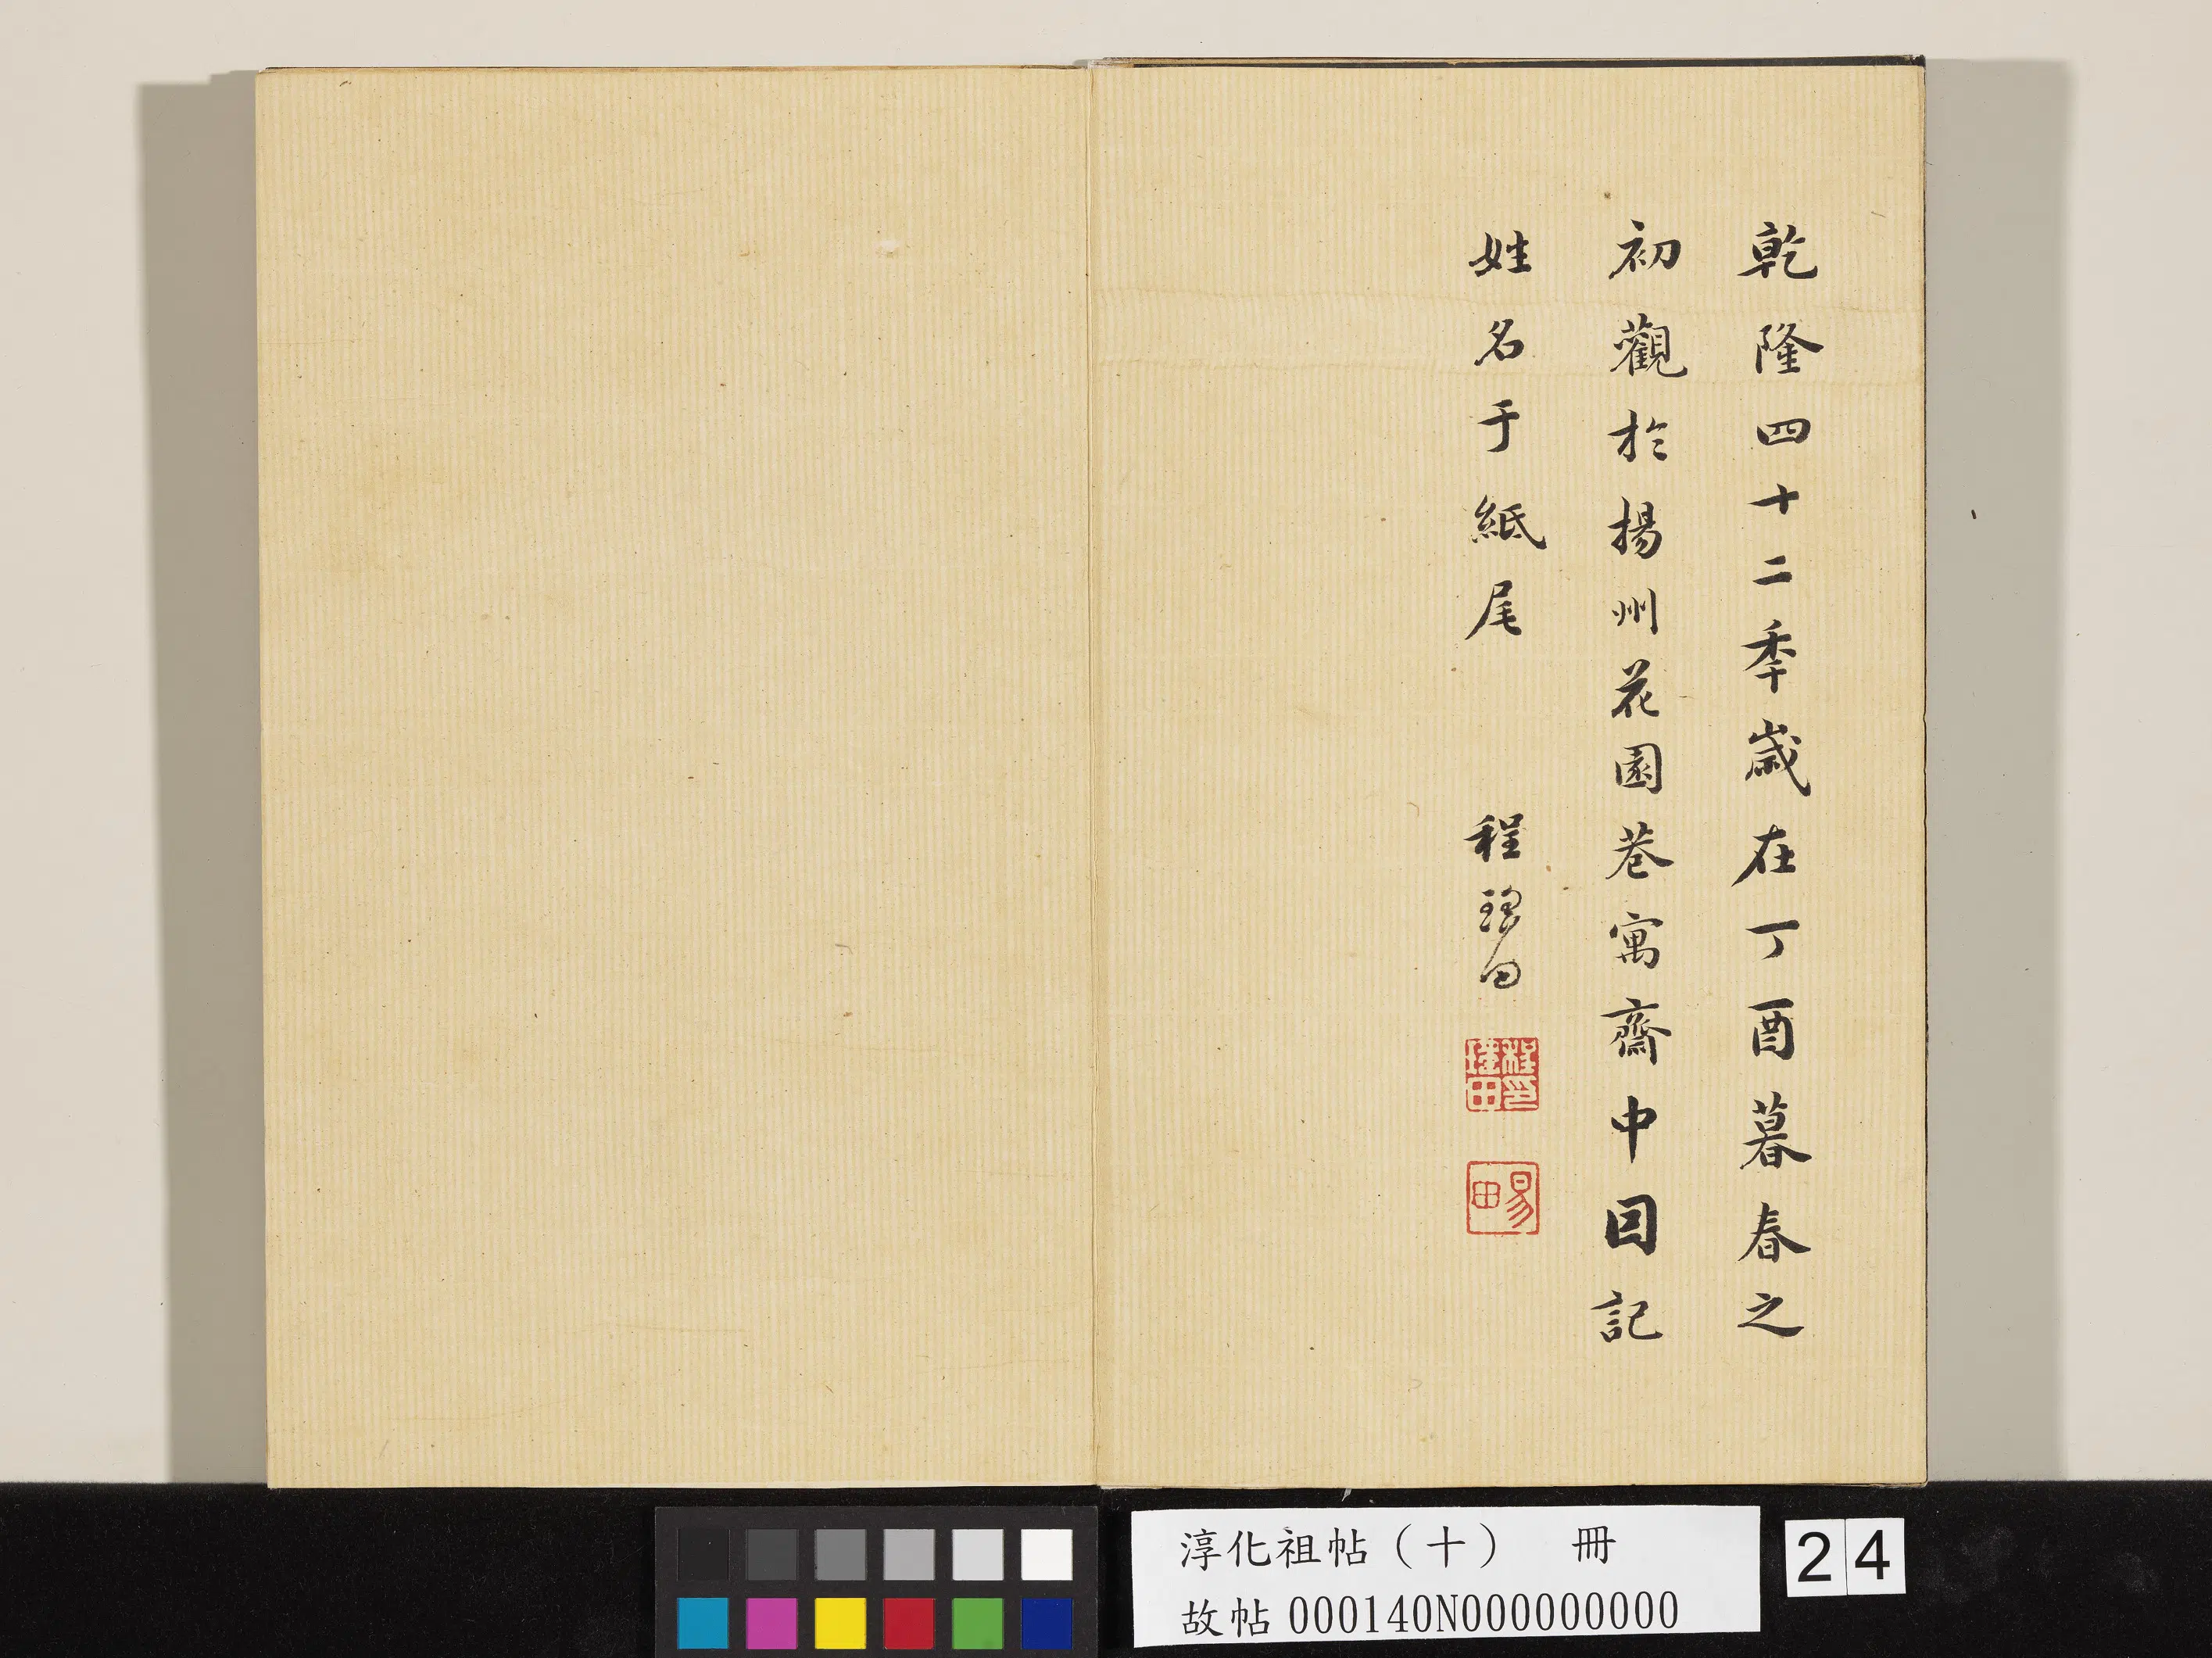 乾隆四十二季歲在丁酉暮春之
初觀於揚州花園巷寓齋中囙記
姓名于紙尾 程瑤田
程瑤田印
易田
淳化祖帖（十） 冊
故帖000140N000000000
24